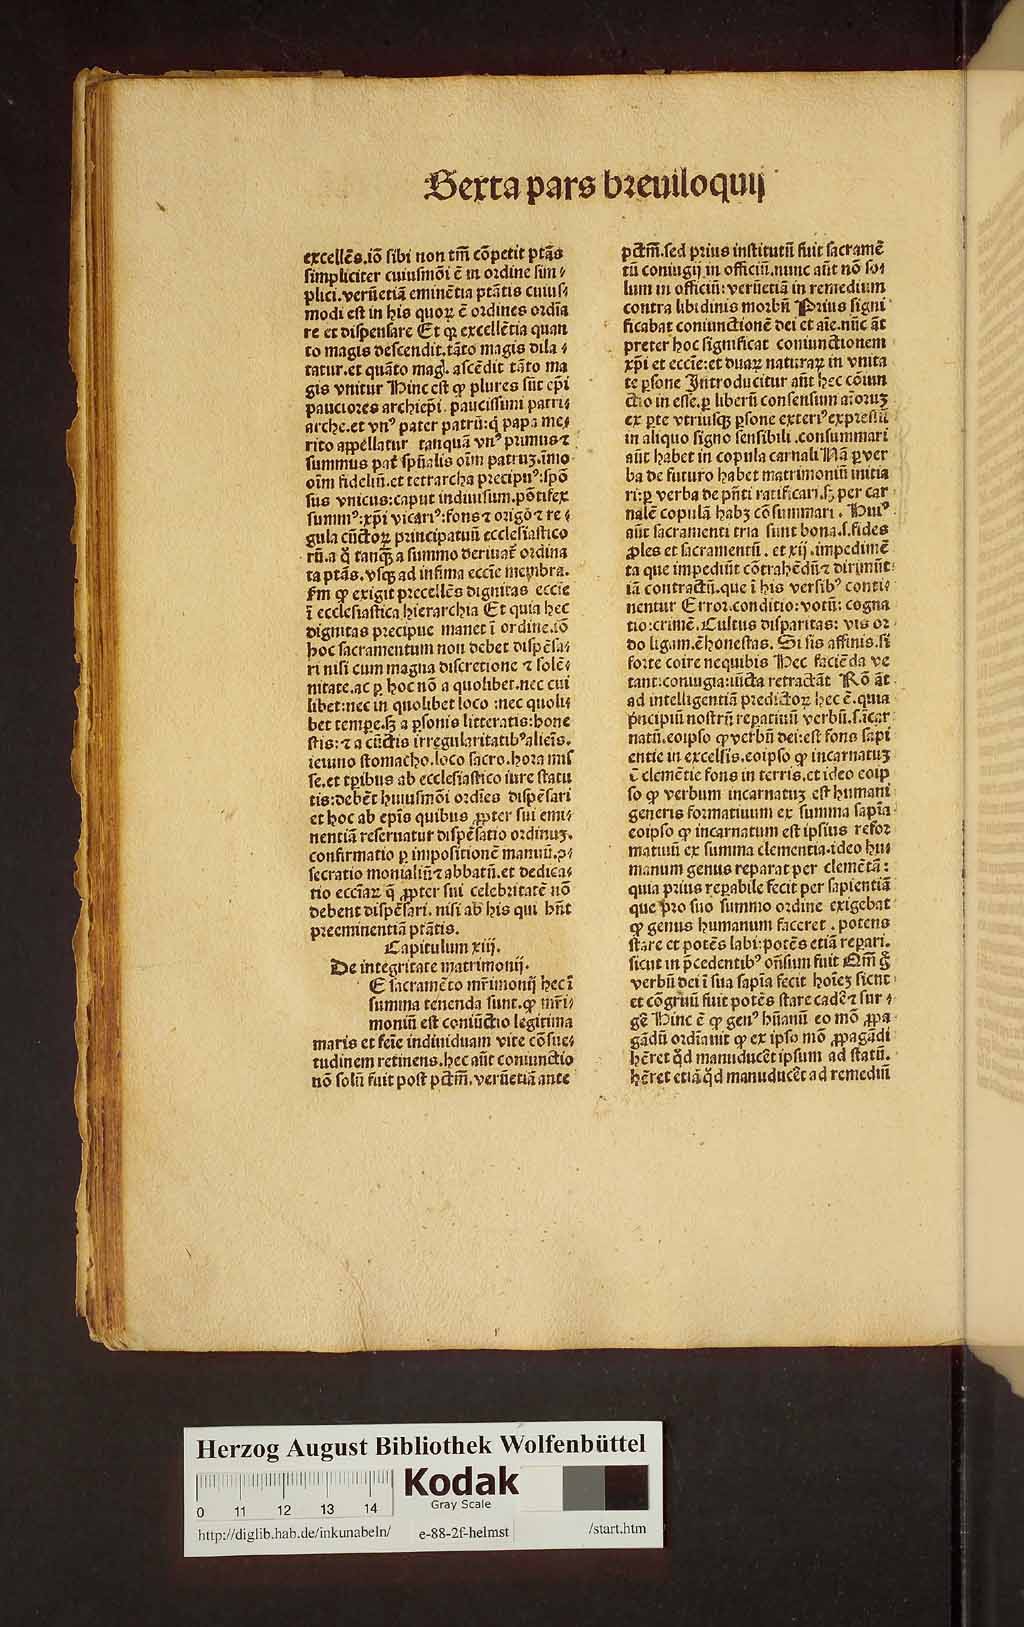 Sexta pars breuiloquij
excellẽs.iõ sibi non tm̃ cõpetit ptãs
simpliciter cuiusmõi ẽ in ordine sim⸗
plici.verũetiã eminẽtia ptãtis cuius⸗
modi est in his quoꝝ ẽ ordines ordĩa
re et dispensare Et qꝛ excellẽtia quan
to magis descendit.tãto magis dila⸗
tatur.et quãto magꝭ. ascẽdit tãto ma
gis vnitur Hinc est ꝙ plures sũt ep̃i
pauciores archiep̃i. paucissimi patri⸗
arche.et vnꝰ pater patrũ:q̃ papa me⸗
rito appellatur tanquã vnꝰ primus⁊
summus pat̃ spũalis oĩm patruꝫ.ĩmo
oĩm fideliũ.et tetrarcha precipuꝰ:spõ
sus vnicus:caput indiuisum.põtifex
summꝰ:xp̃i vicariꝰ:fons⁊ origõ⁊ re⸗
gula cũctoꝝ principatuũ ecclesiastico
rũ.a q̃ tanqꝫ a summo deriuat̃ ordina
ta ptãs.vsqꝫ ad infima eccĩe membra.
fm̃ ꝙ exigit precellẽs dignitas eccĩe
ĩ ecclesiastica hierarchia Et quia hec
dignitas precipue manet ĩ ordine.iõ
hoc sacramentum non debet dispẽsa⸗
ri nisi cum magna discretione ⁊ solẽ⸗
nitate.ac ꝑ hoc nõ a quolibet.nec cui
libet:nec in quolibet loco :nec quoli⸗
bet tempe.sꝫ a ꝑsonis litteratis:hone
stis:⁊ a cũctis irregularitatibꝰalieĩs.
ieiuno stomacho.loco sacro.hora mis
se.et tp̃ibus ab ecclesiastico iure statu
tis:debẽt huiusmõi ordĩes dispẽsari
et hoc ab ep̃is quibus ꝓpter sui emi⸗
nentiã reseruatur dispẽsatio ordinuꝫ.
confirmatio ꝑ impositionẽ manuũ.ↄ⸗
secratio monialiũ⁊ abbatũ.et dedica⸗
tio eccĩaꝝ q̃ ꝓpter sui celebritatẽ nõ
debent dispẽsari. nisi ab his qui hñt
preeminentiã ptãtis.
Capitulum xiij.
De integritate matrimonij.
E sacramẽto mr̃imonij hec ĩ
summa tenenda sunt.ꝙ mr̃i⸗
moniũ est coniũctio legitima
maris et feĩe indiuiduam vite cõsue⸗
tudinem retinens.hec aũt coniunctio
nõ solũ fuit post pctm̃.verũetiã ante
pctm̃.sed prius institutũ fuit sacramẽ
tũ coniugij in officiũ.nunc aũt nõ so⸗
lum in officiũ: verũetiã in remedium
contra libidinis morbũ Prius signi
ficabat coniunctionẽ dei et aĩe.nũc ãt
preter hoc significat coniunctionem
xp̃i et eccĩe:et duaꝝ naturaꝝ in vnita
te ꝑsone Introducitur aũt hec cõiun
ctio in esse.ꝑ liberũ consensum aĩoruꝫ
ex ꝑte vtriusqꝫ ꝑsone exteriꝰ expressũ
in aliquo signo sensibili .consummari
aũt habet in copula carnali Nã ꝑ ver
ba de futuro habet matrimoniũ initia
ri:ꝑ verba de pñti ratificari.sꝫ per car
nalẽ copulã habꝫ cõsummari . Huiꝰ
aũt sacramenti tria sunt bona.s.fides
ꝓles et sacramentũ . et xij .impedimẽ
ta que impediũt cõtrahẽdũ⁊ dirimũt:
iã contractũ.que ĩ his versibꝰ conti⸗
nentur Error.conditio:votũ: cogna
tio:crimẽ.Cultus disparitas: vis or⸗
do ligam.ẽ honestas. Si sis affinis.si
forte coire nequibis Hec faciẽda ve
tant:coniugia:iũcta retractãt Rõ ãt
ad intelligentiã predictoꝝ hec ẽ.quia
p̃ncipiũ nostrũ repatiuũ verbũ.s.ĩcar
natũ.eoipso ꝙ verbũ dei:est fons sapi
entie in excelsis.eoipso ꝙ incarnatuꝫ
ẽ clemẽtie fons in terris.et ideo eoip
so ꝙ verbum incarnatuꝫ est humani
generis formatiuum ex summa sapĩa
eoipso ꝙ incarnatum est ipsius refor
matiuũ ex summa clementia.ideo hu⸗
manum genus reparat per clemẽtã:
quia prius reꝑabile fecit per sapientiã
que pro suo summo ordine exigebat
ꝙ genus humanum faceret . potens
stare et potẽs labi:potẽs etiã reꝑari.
sicut in p̃cedentibꝰ oñsum fuit Qm̃ g̃
verbũ dei ĩ sua sapĩa fecit hoĩeꝫ sicut
et cõgruũ fuit potẽs stare cadẽ⁊ sur⸗
gẽ Hinc ẽ ꝙ genꝰ hũanũ eo mõ ꝓpa
gãdũ ordĩauit ꝙ ex ipso mõ ꝓpagãdi
hẽret q̃d manuducẽt ipsum ad statũ.
hẽret etiã q̃d manuducẽt ad remediũ
Herzog August Bibliothek Wolfenbüttel
Kodak
Gray Scale
0 11 12 13 14
http://diglib.hab.de/inkunabeln/ e-88-2f-helmst /start.htm